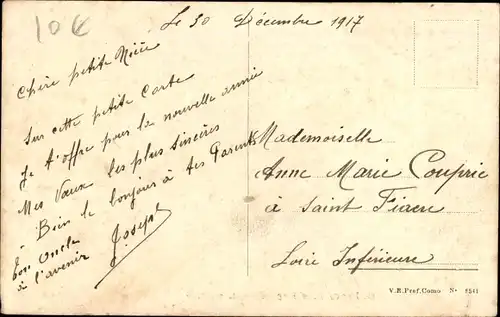 10 €
Le 30 Décembre 1917
Chère petite Nièce
Sur cette petite Carte
Je t'offre pour la nouvelle année
Mes Vœux les plus sincères
Bein le bonjour à tes Parents
Ton Oncle
à l'avenir
Joseph
Mademoiselle
Anne Marie Couprie
à Saint Fiacre
Loire Inférieure
V.E. Pref. Como N°